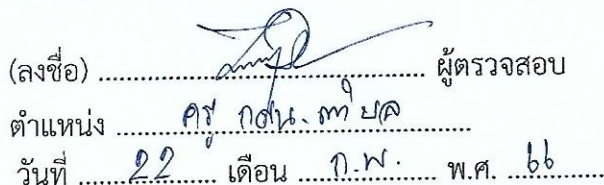 (ลงชื่อ) ........................................ ผู้ตรวจสอบ
ตำแหน่ง ครู กศน.ตำบล
วันที่ 22 เดือน ก.พ. พ.ศ. 66